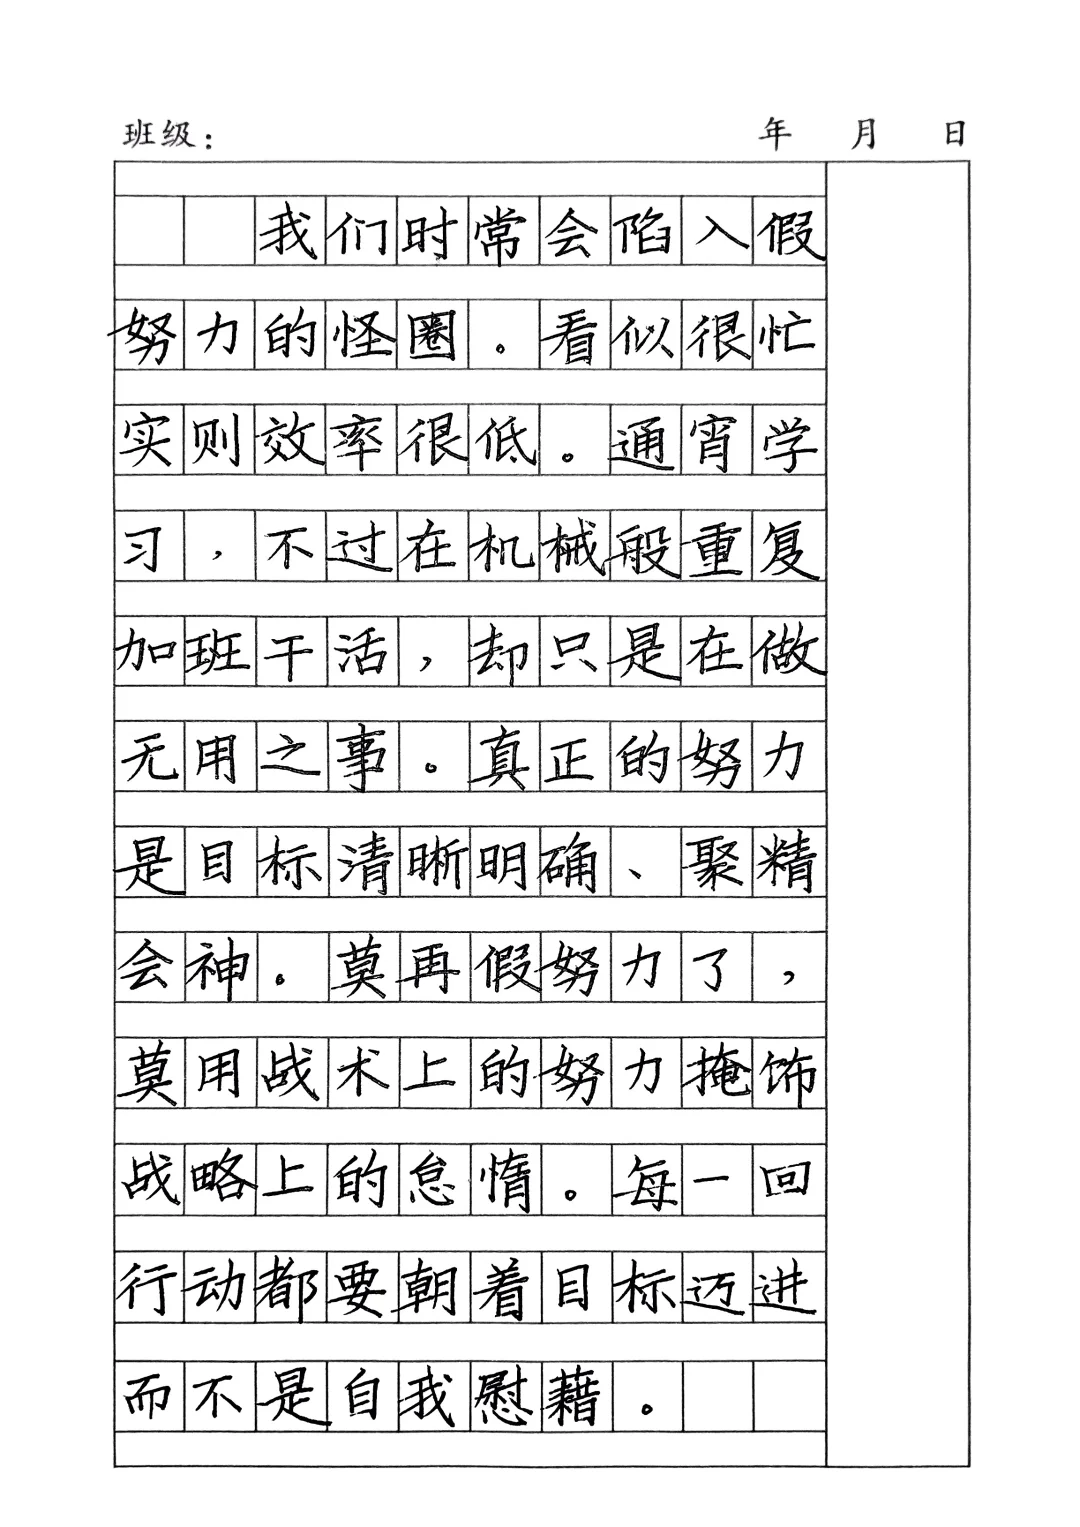 班级： 年 月 日
我们时常会陷入假
努力的怪圈。看似很忙
实则效率很低。通宵学
习，不过在机械般重复
加班干活，却只是在做
无用之事。真正的努力
是目标清晰明确、聚精
会神。莫再假努力了，
莫用战术上的努力掩饰
战略上的怠惰。每一回
行动都要朝着目标迈进
而不是自我慰藉。